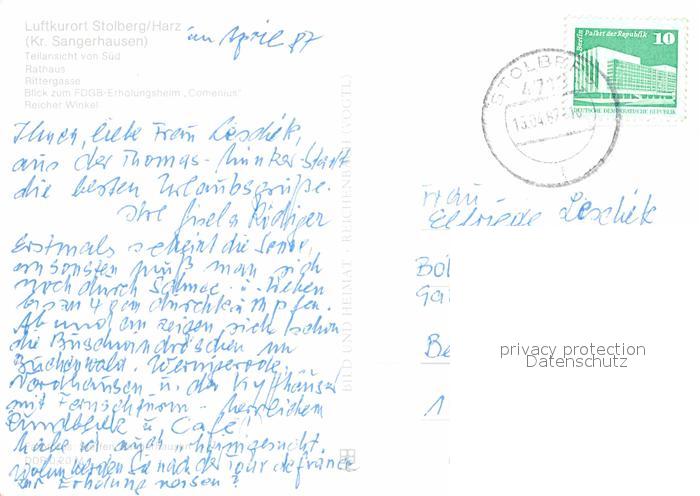 Luftkurort Stolberg/Harz
(Kr. Sangerhausen)
Teilansicht von Süd
Rathaus
Rittergasse
Blick zum FDGB-Erholungsheim „Comenius"
Reicher Winkel
im April 87
Ihnen, liebe Frau Leschek,
aus der Thomas-Müntzer-Stadt
die besten Urlaubsgrüße.
Ihre Gisela Rüdiger
Erstmals scheint die Sonne,
ansonsten muß man sich
noch durch Schnee u.
bis zu 4 cm durchkämpfen.
Ab und an zeigen sich schon
die Buschwindröschen im
Buchenwald. Wernigerode,
Nordhausen u. den Kyffhäuser
mit Fernsehturm - herrlichem
Rundblick u. Café
habe ich auch heimgesucht.
Wohin werden Sie nach der Tour de france
zur Erholung reisen?
BILD UND HEIMAT REICHENBACH (VOGTL)
Berlin Palast der Republik 10
DEUTSCHE DEMOKRATISCHE REPUBLIK
STOLBERG
4713
13.04.87
Frau
Elfriede Leschek
Böl
Ga
Be
1
privacy protection
Datenschutz